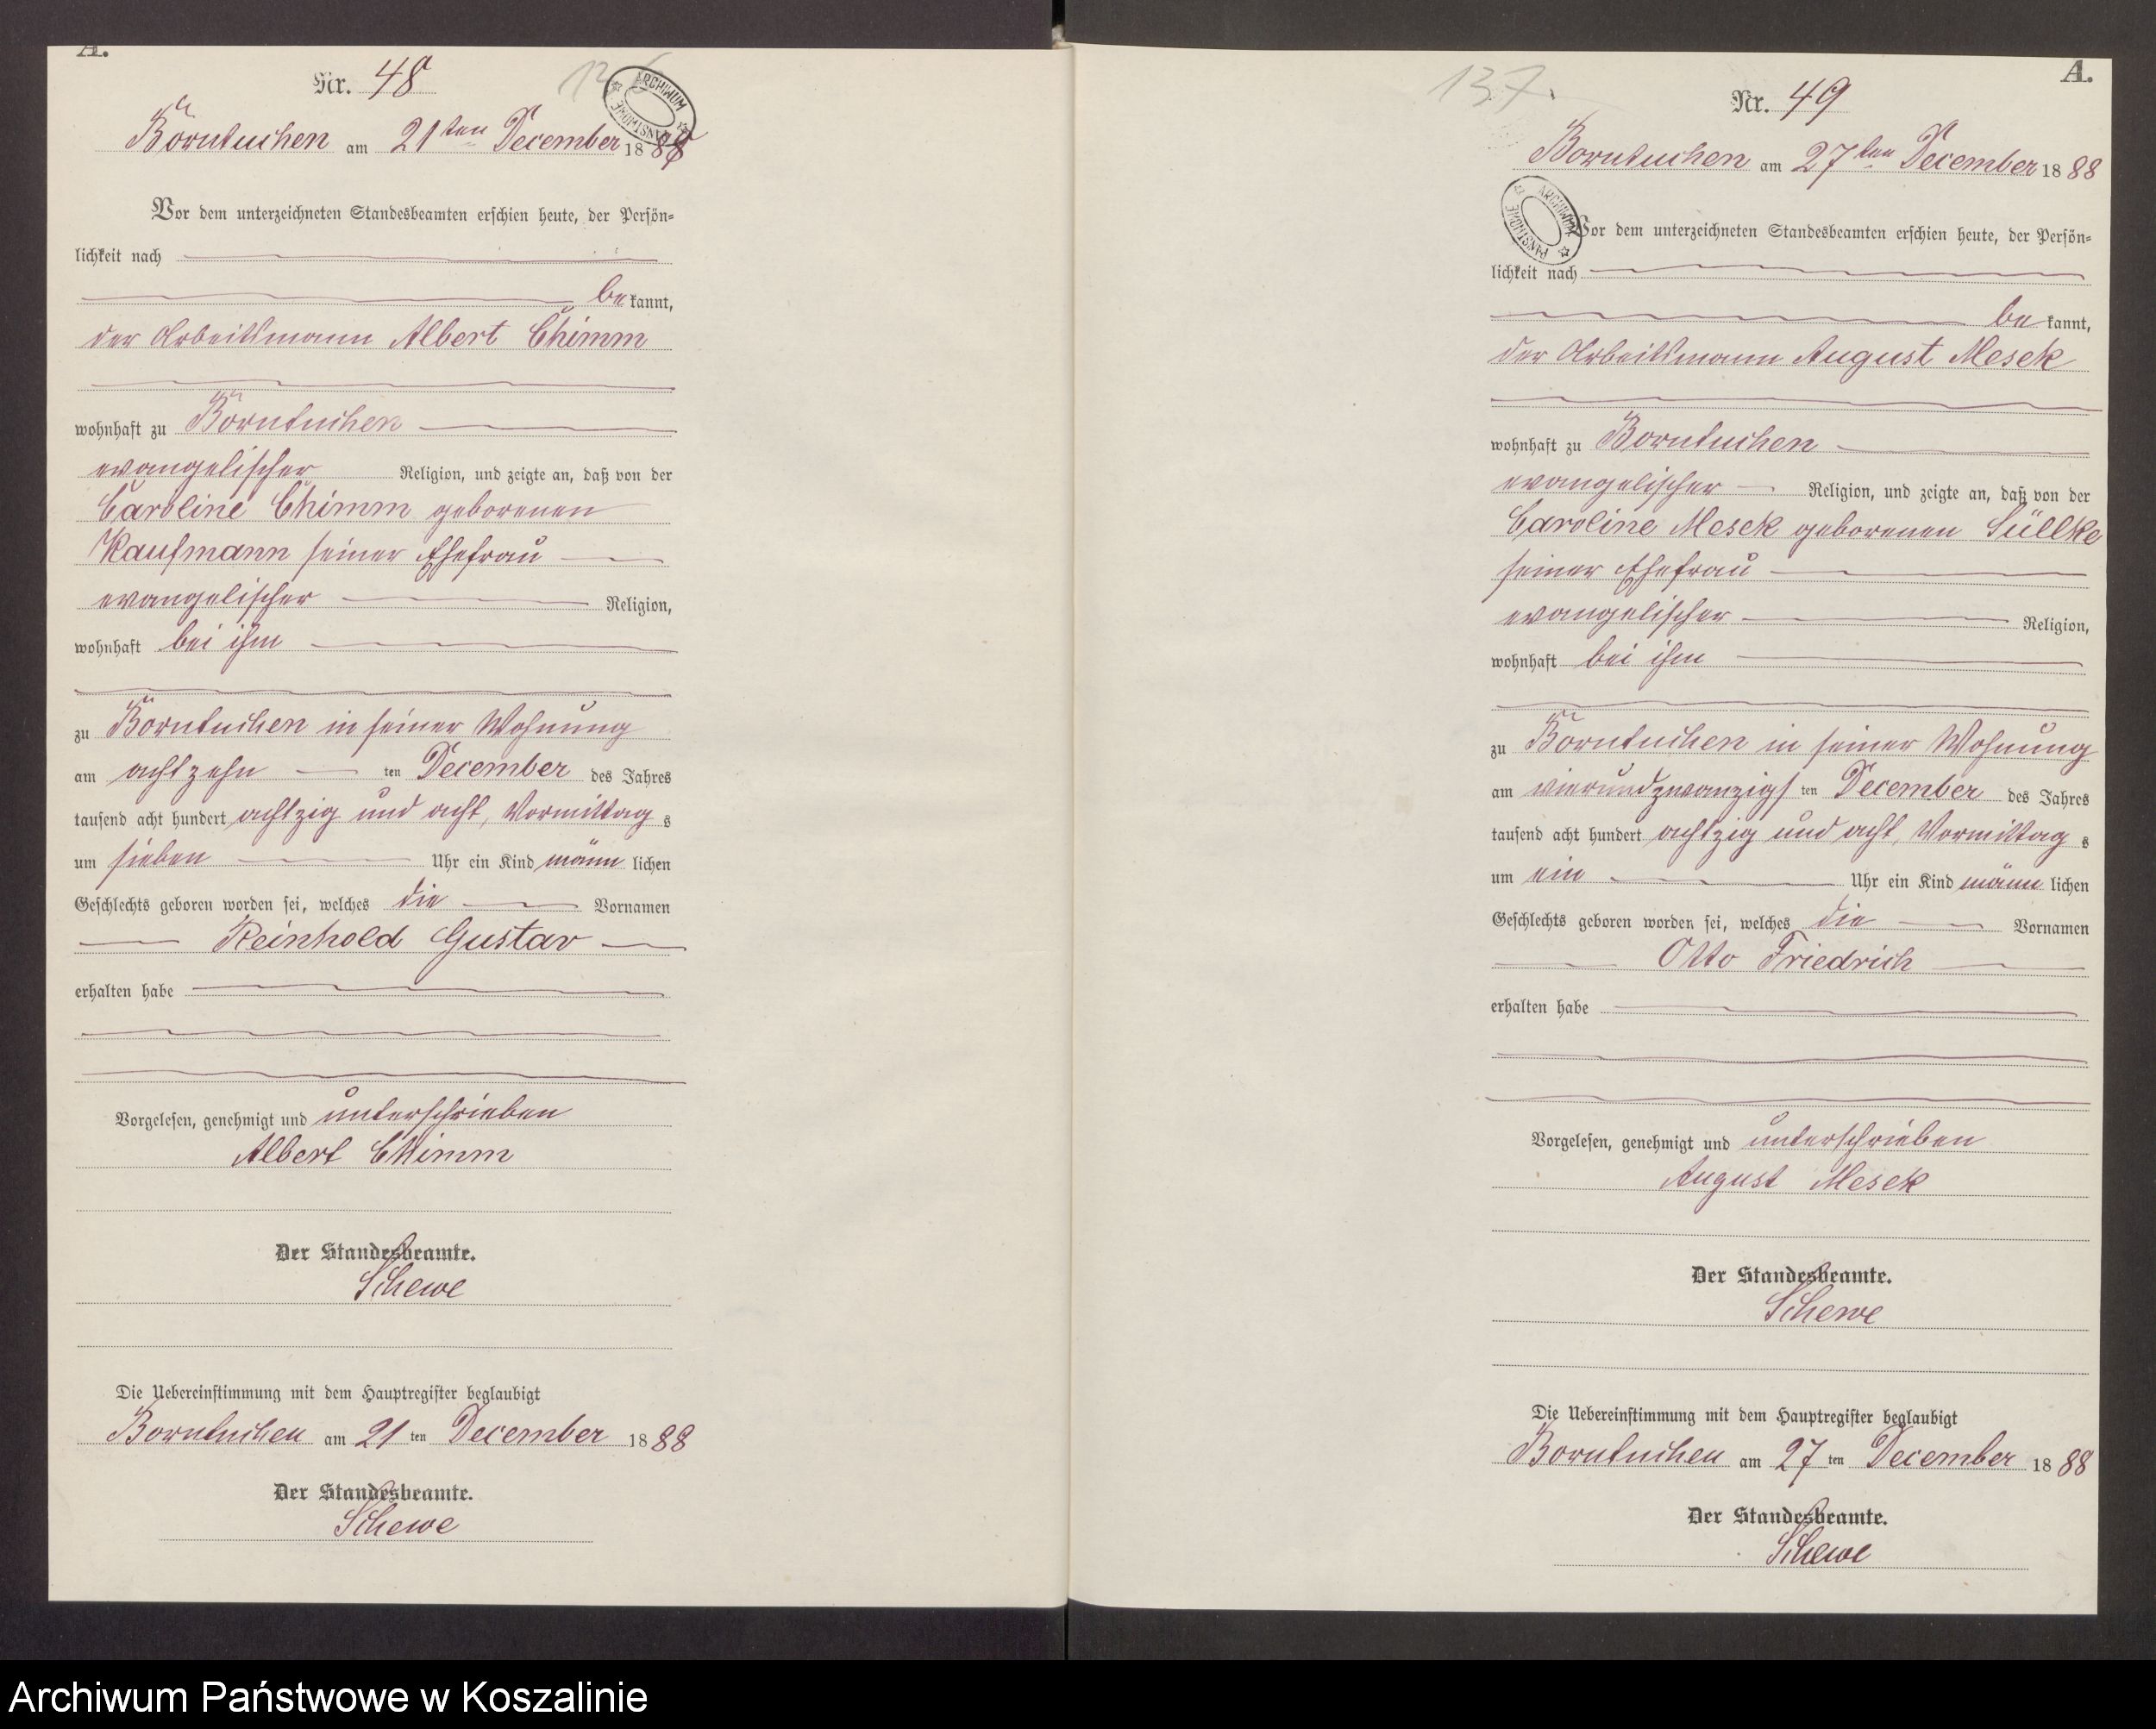 A.
Nr. 48
136
ARCHIWUM PAŃSTWOWE
Borntuchen am 21ten December 1888
Vor dem unterzeichneten Standesbeamten erschien heute, der Persön=
lichkeit nach
be kannt,
der Arbeitsmann Albert Chimm
wohnhaft zu Borntuchen
evangelischer Religion, und zeigte an, daß von der
Caroline Chimm geborenen
Kaufmann seiner Ehefrau
evangelischer Religion,
wohnhaft bei ihm
zu Borntuchen in seiner Wohnung
am achtzehn ten December des Jahres
tausend acht hundert achtzig und acht, Vormittag s
um sieben Uhr ein Kind männ lichen
Geschlechts geboren worden sei, welches die Vornamen
Reinhold Gustav
erhalten habe
Vorgelesen, genehmigt und unterschrieben
Albert Chimm
Der Standesbeamte.
Schewe
Die Uebereinstimmung mit dem Hauptregister beglaubigt
Borntuchen am 21 ten December 1888
Der Standesbeamte.
Schewe
137.
A.
Nr. 49
Borntuchen am 27ten December 1888
ARCHIWUM PAŃSTWOWE
Vor dem unterzeichneten Standesbeamten erschien heute, der Persön=
lichkeit nach
be kannt,
der Arbeitsmann August Mesek
wohnhaft zu Borntuchen
evangelischer Religion, und zeigte an, daß von der
Caroline Mesek geborenen Süllke
seiner Ehefrau
evangelischer Religion,
wohnhaft bei ihm
zu Borntuchen in seiner Wohnung
am vierundzwanzigs ten December des Jahres
tausend acht hundert achtzig und acht, Vormittag s
um ein Uhr ein Kind männ lichen
Geschlechts geboren worden sei, welches die Vornamen
Otto Friedrich
erhalten habe
Vorgelesen, genehmigt und unterschrieben
August Mesek
Der Standesbeamte.
Schewe
Die Uebereinstimmung mit dem Hauptregister beglaubigt
Borntuchen am 27 ten December 1888
Der Standesbeamte.
Schewe
Archiwum Państwowe w Koszalinie